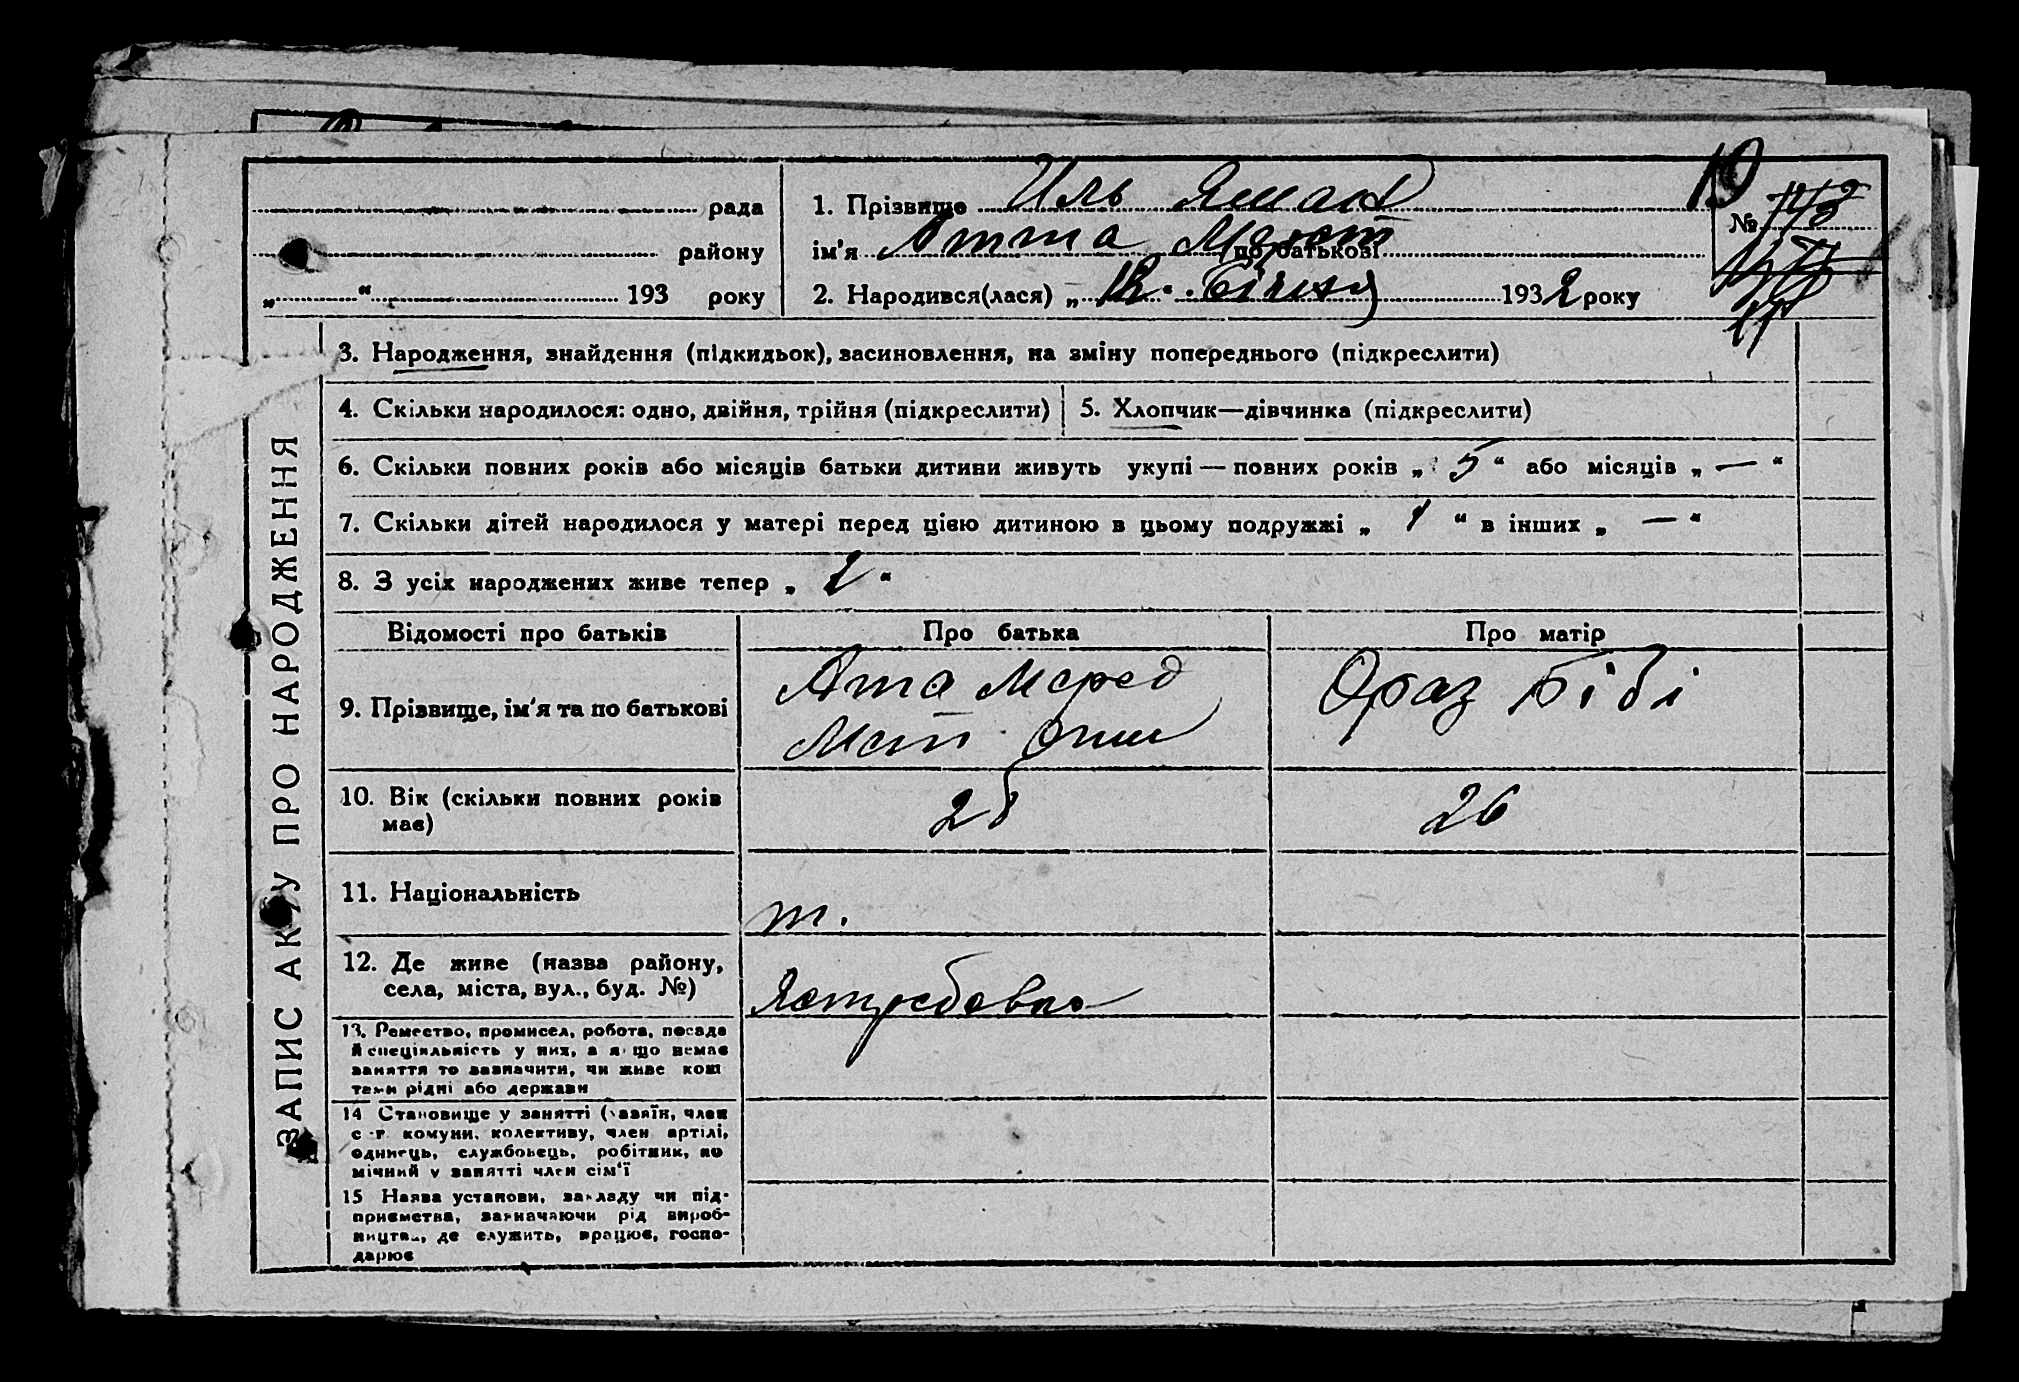 рада
району
„ “ 193 року
1. Прізвище Иль Яман
ім'я Атта Мерет по батькові
2. Народився(лася) „ 12. Січня 1932 року
№
3. Народження, знайдення (підкидьок), засиновлення, на зміну попереднього (підкреслити)
4. Скільки народилося: одно, двійня, трійня (підкреслити)
5. Хлопчик—дівчинка (підкреслити)
6. Скільки повних років або місяців батьки дитини живуть укупі — повних років „ 5 “ або місяців „ — “
7. Скільки дітей народилося у матері перед цією дитиною в цьому подружжі „ 1 “ в інших „ — “
8. З усіх народжених живе тепер „ 1 “
ЗАПИС АКТУ ПРО НАРОДЖЕННЯ
Відомості про батьків
Про батька
Про матір
9. Прізвище, ім'я та по батькові
Ата Меред
Ораз Бібі
10. Вік (скільки повних років
має)
28
26
11. Національність
т.
12. Де живе (назва району,
села, міста, вул., буд. №)
Ястребовка
13. Ремество, промисел, робота, посада
й спеціяльність у них, а якщо немає
заняття то зазначити, чи живе кош
тами рідні або держави
14 Становище у занятті (хазяїн, член
с.-г. комуни, колективу, член артілі,
одинець, службовець, робітник, по
мічний у занятті член сім'ї
15 Назва установи, закладу чи під-
приємства, зазначаючи рід вироб-
ництва, де служить, працює, госпо-
дарює